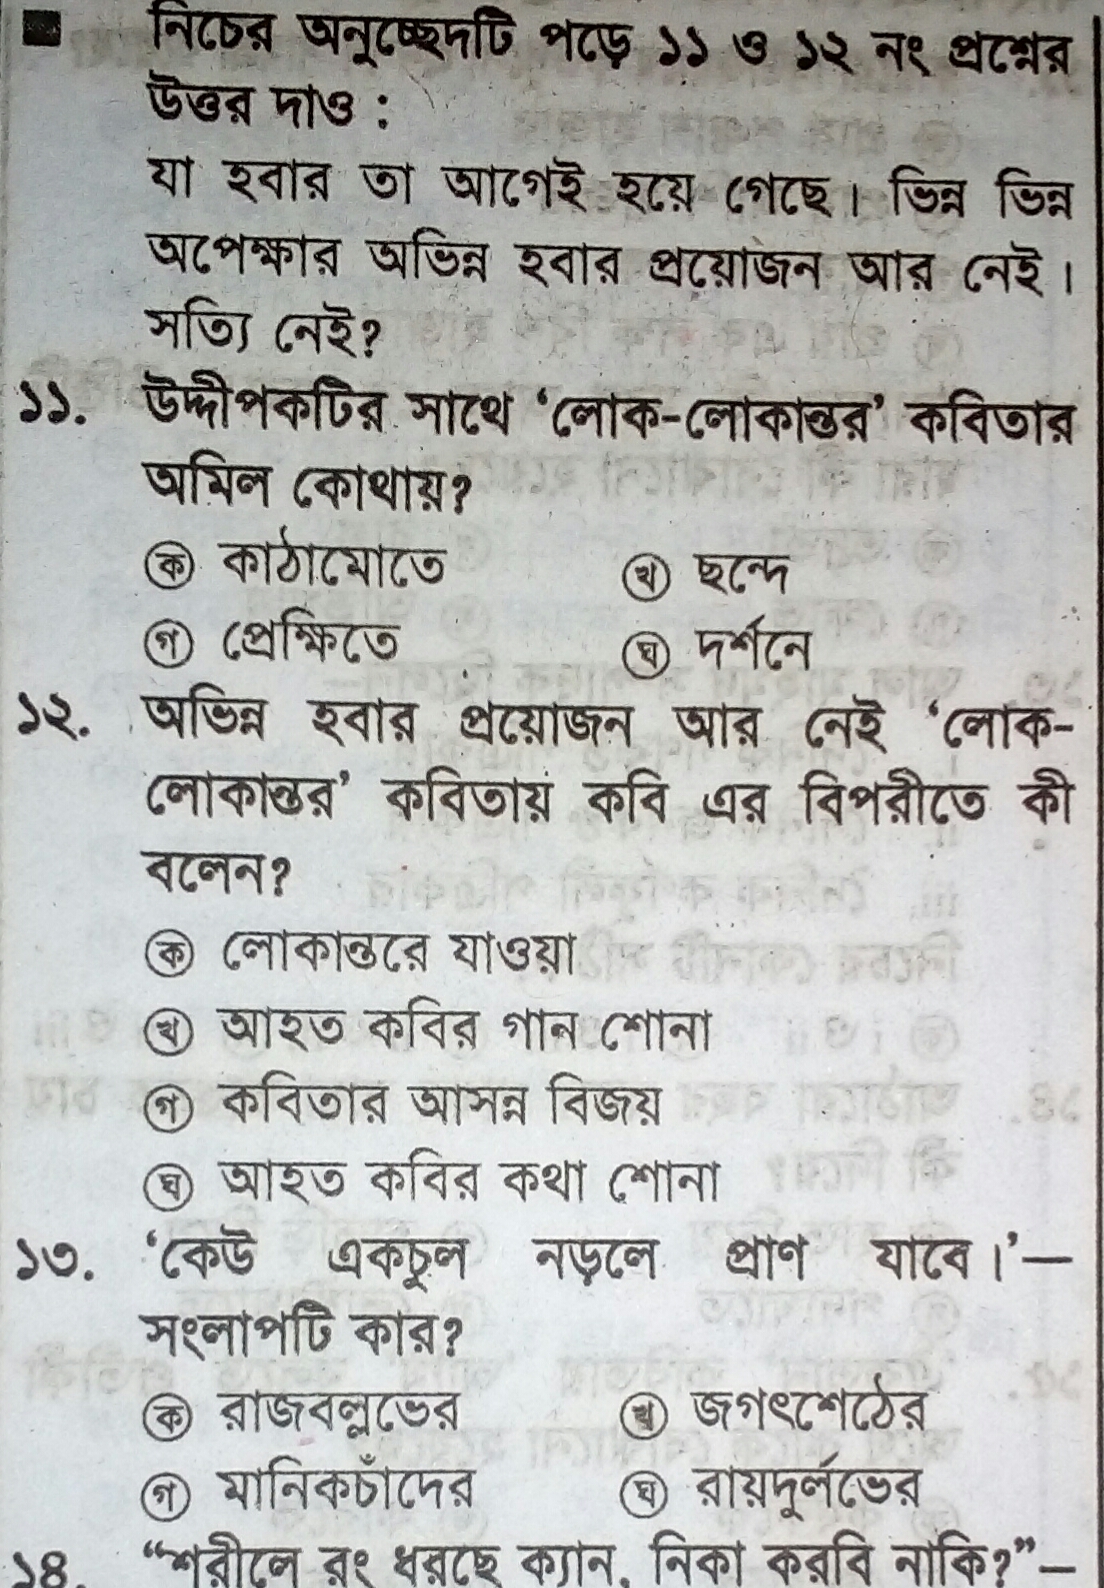 নিচের অনুচ্ছেদটি পড়ে ১১ ও ১২ নং প্রশ্নের
উত্তর দাও :
যা হবার তা আগেই হয়ে গেছে। ভিন্ন ভিন্ন
অপেক্ষার অভিন্ন হবার প্রয়োজন আর নেই।
সত্যি নেই?
১১. উদ্দীপকটির সাথে ‘লোক-লোকান্তর’ কবিতার
অমিল কোথায়?
ক কাঠামোতে খ ছন্দে
গ প্রেক্ষিতে ঘ দর্শনে
১২. অভিন্ন হবার প্রয়োজন আর নেই ‘লোক-
লোকান্তর’ কবিতায় কবি এর বিপরীতে কী
বলেন?
ক লোকান্তরে যাওয়া
খ আহত কবির গান শোনা
গ কবিতার আসন্ন বিজয়
ঘ আহত কবির কথা শোনা
১৩. ‘কেউ একচুল নড়লে প্রাণ যাবে।’—
সংলাপটি কার?
ক রাজবল্লভের খ জগৎশেঠের
গ মানিকচাঁদের ঘ রায়দুর্লভের
১৪. “শরীলে রং ধরছে ক্যান, নিকা করবি নাকি?”—